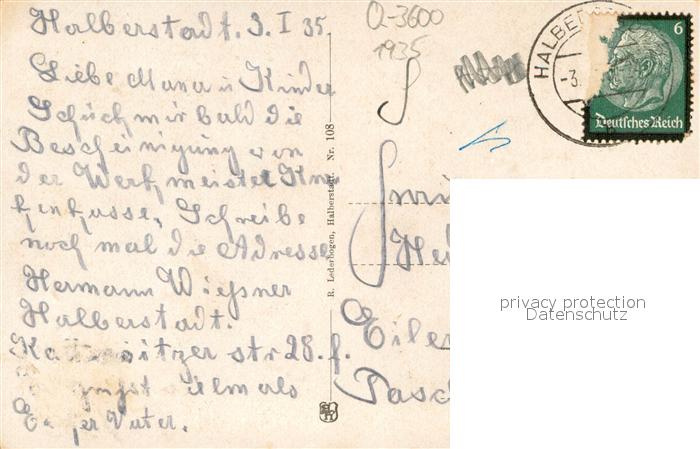 Halberstadt. 3. I 35.
Q-3600
1935
Liebe Mama u Kinder
Schück mir bald die
Bescheinigung von
der Werkmeister Kra
kenkasse, Schreibe
noch mal die Adresse
Hermann Wießner
Halberstadt.
str 28. f.
vielmals
Vater.
R. Lederbogen, Halberstadt. Nr. 108
HALBE
-3.
6
Deutsches Reich
privacy protection
Datenschutz